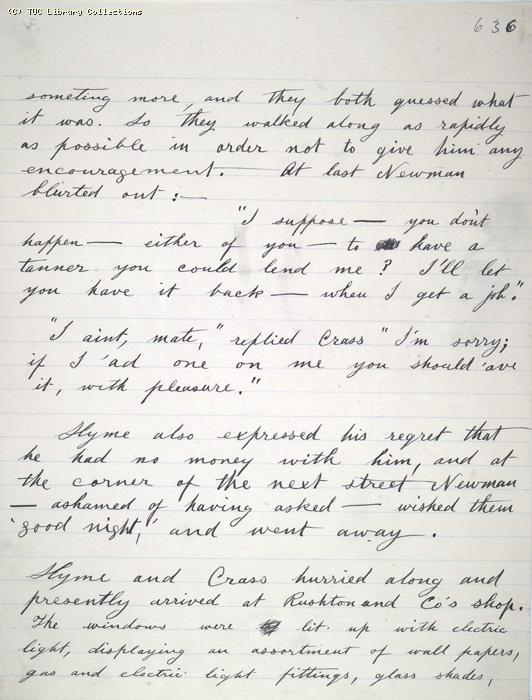 (C) TUC Library Collections
636
someting more, and they both guessed what
it was. So they walked along as rapidly
as possible in order not to give him any
encouragement. — At last Newman
blurted out :—
"I suppose — you don't
happen — either of you — to have a
tanner you could lend me? I'll let
you have it back — when I get a job".
"I aint, mate," replied Crass "I'm sorry;
if I 'ad one on me you should 'ave
it, with pleasure."
Slyme also expressed his regret that
he had no money with him, and at
the corner of the next street Newman
— ashamed of having asked — wished them
'good night,' and went away.
Slyme and Crass hurried along and
presently arrived at Rushton and Co's shop.
The windows were lit up with electric
light, displaying an assortment of wall papers,
gas and electric light fittings, glass shades,